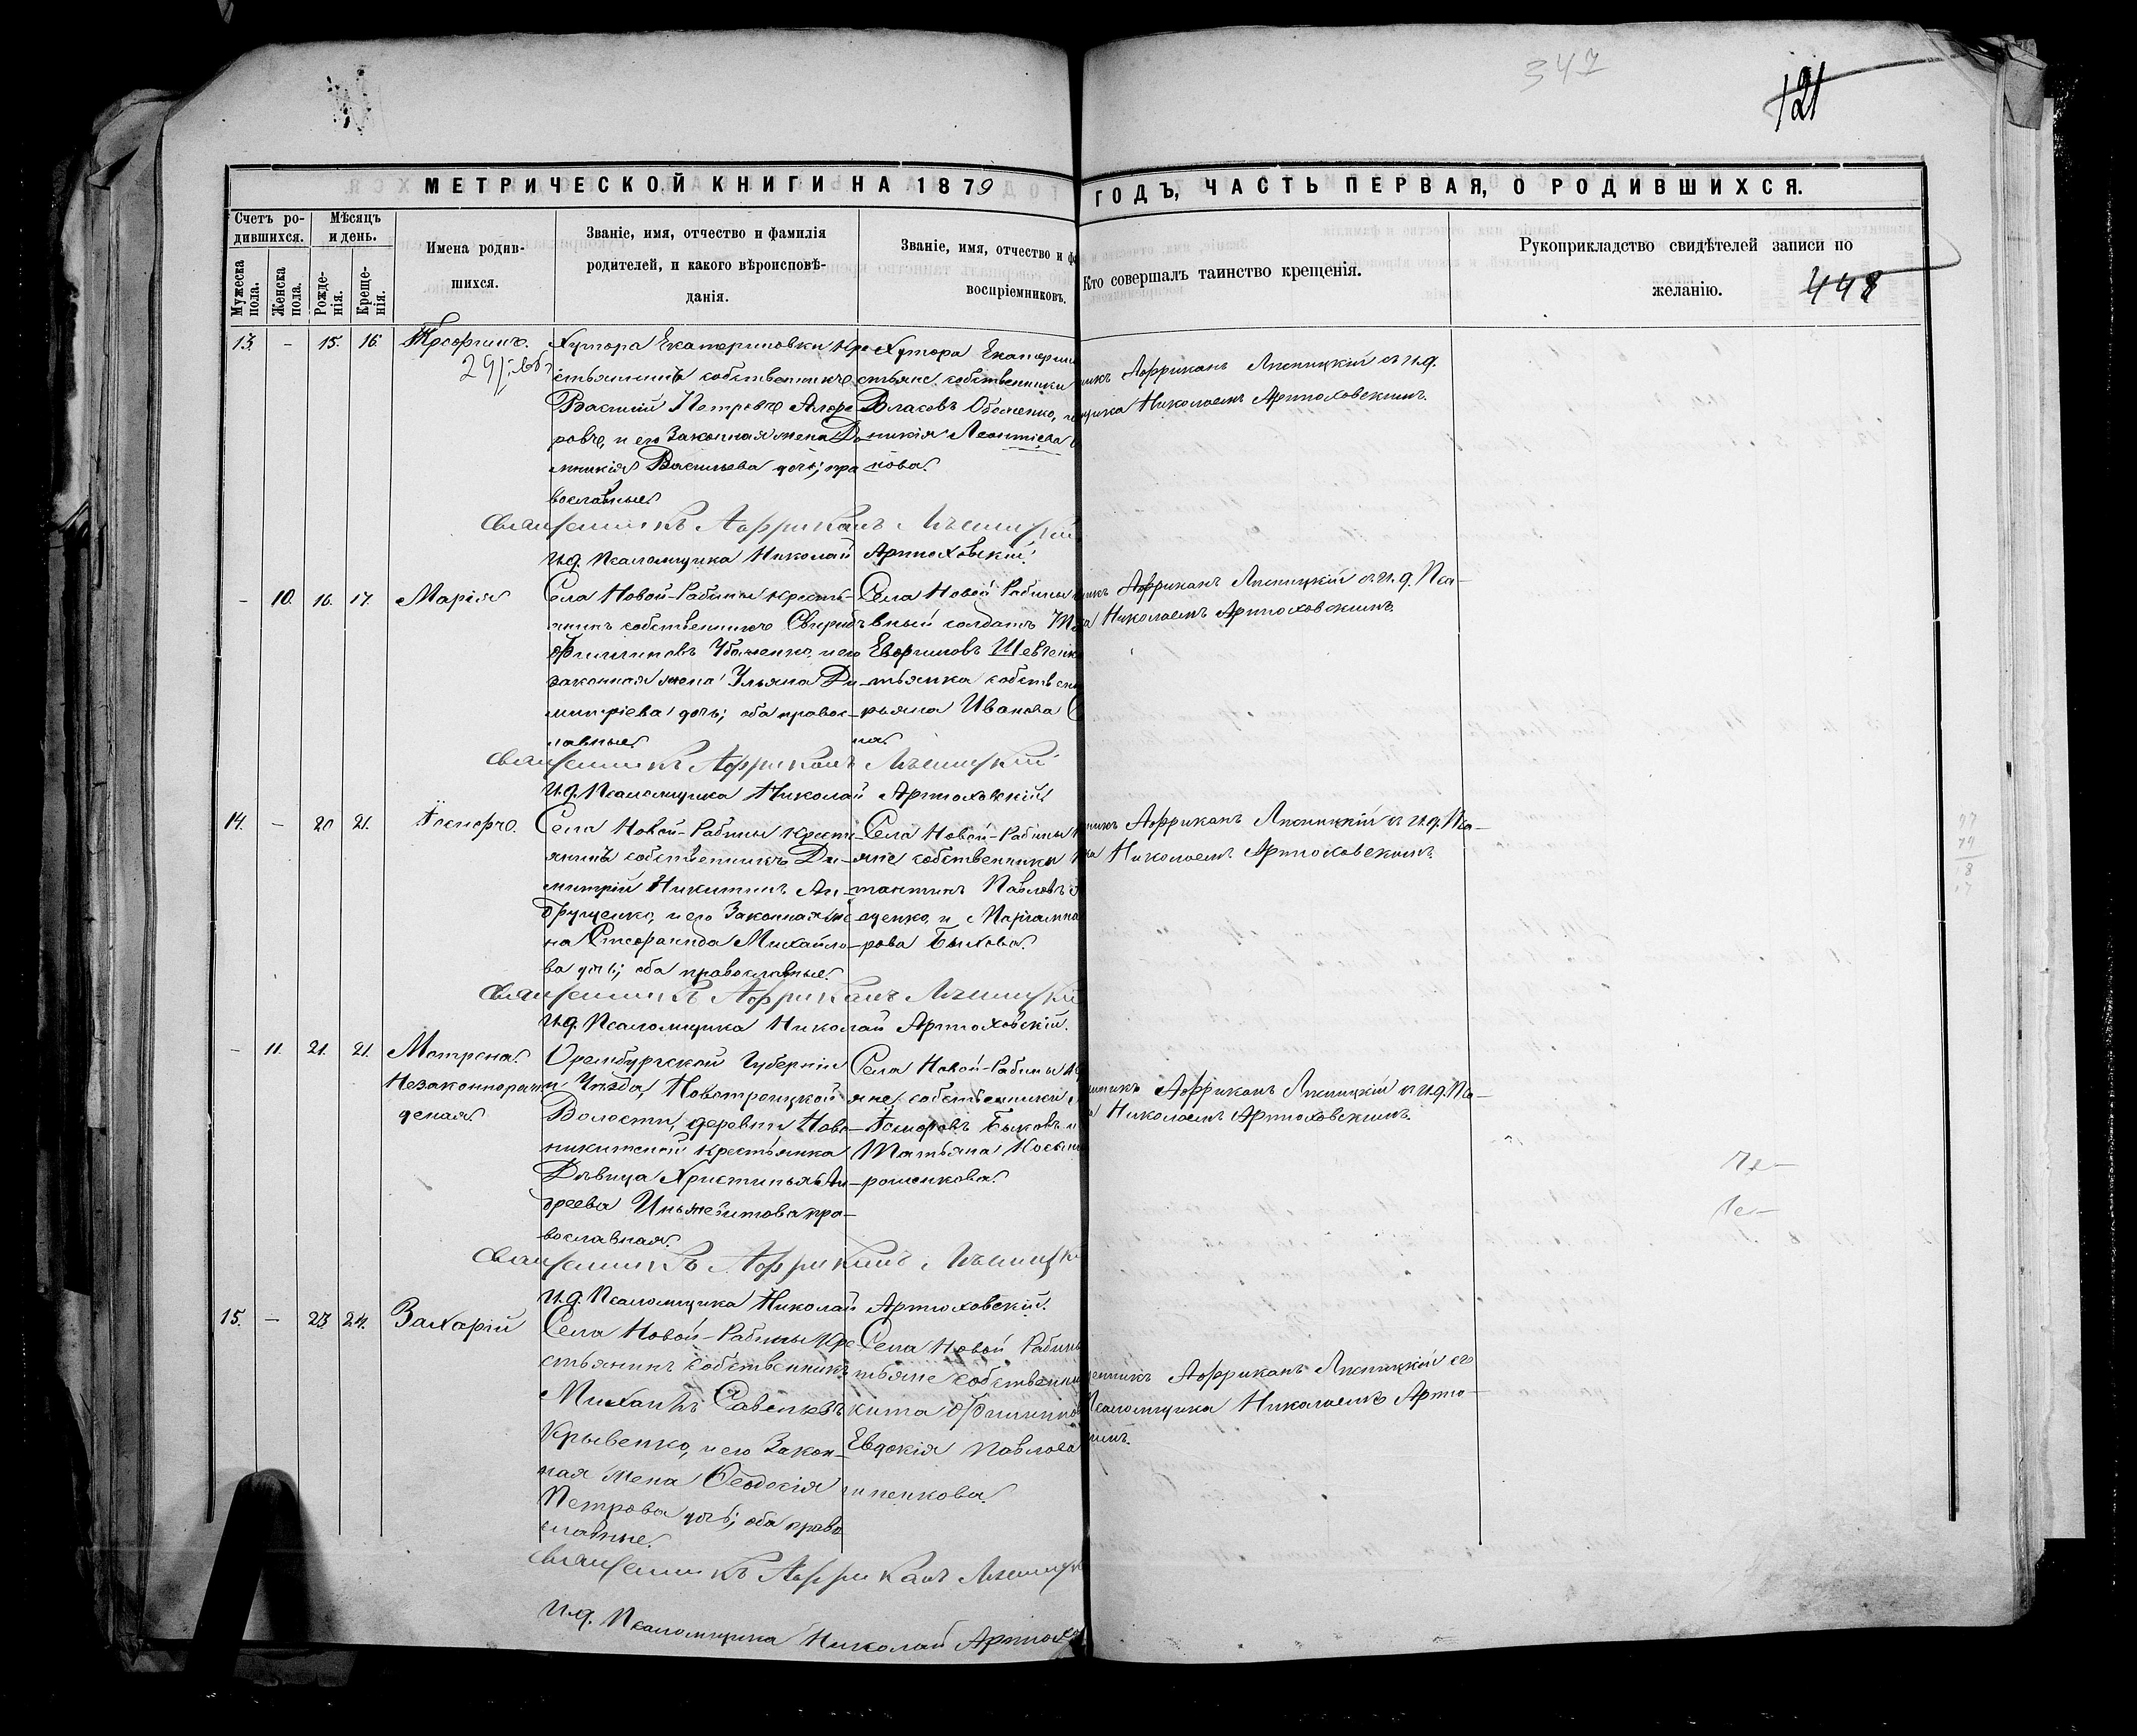 347
121
МЕТРИЧЕСКОЙ КНИГИ НА 1879
ГОДЪ, ЧАСТЬ ПЕРВАЯ, О РОДИВШИХСЯ.
Счетъ ро-
дившихся.
Мѣсяцъ
и день.
Мужеска
пола.
Женска
пола.
Рожде-
нія.
Креще-
нія.
Имена родив-
шихся.
Званіе, имя, отчество и фамилія
родителей, и какого вѣроисповѣ-
данія.
Званіе, имя, отчество и фа
воспріемниковъ.
Кто совершалъ таинство крещенія.
Рукоприкладство свидѣтелей записи по
желанію.
448
13. - 15. 16.
Трофимъ.
Хутора Екатериновки кре
стьянинъ собственникъ
Василій Петровъ
ровъ, и его законная жена До
мникія Васильева дочь;
вославные.
Хутора Екатерин
стьяне собственники
Власовъ
никія Леонтіева
кова.
никъ Африканъ Лисницкій съ и.д.
щика Николаемъ Артюховскимъ.
Священникъ Африканъ Лисницкій
И.д. Псаломщика Николай Артюховскій.
- 10. 16. 17.
Марія
Села Новой-Рабины кресть-
янинъ собственникъ Свирид
Филиповъ Убоженко, и его
законная жена Ульяна Ди-
митріева дочь; оба правос-
лавные.
Села Новой Рабины
вный солдатъ
Евфимовъ Шевченк
тьянка собствен
рьяна Иванова
на.
никъ Африканъ Лисницкій съ и.д. Пса-
ка Николаемъ Артюховскимъ.
Священникъ Африканъ Лисницкій
И.д. Псаломщика Николай Артюховскій.
14. - 20 21.
Іосифъ.
Села Новой-Рабины крест
янинъ собственникъ Ди-
митрій Никитинъ Ан-
друщенко, и его законная же
на Стефанида Михайло-
ва дочь; оба православные.
Села Новой-Рабины
яне собственники
тантинъ Павловъ
щенко, и Маріамна
рова Быкова.
никъ Африканъ Лисницкій съ и.д. Пса-
ка Николаемъ Артюховскимъ.
Священникъ Африканъ Лисницкій
И.д. Псаломщика Николай Артюховскій.
- 11. 21. 21.
Матрена.
Незаконнорож
денная.
Оренбургской Губерніи
и Уѣзда, Новотроицкой
Волости, деревни Ново-
никитской крестьянка
Дѣвица Христинья Ан-
дреева пра-
вославная.
Села Новой-Рабины
яне собственники
Ѳедоровъ Быковъ и
Татьяна
рошенкова.
никъ Африканъ Лисницкій съ и.д. Пса-
Николаемъ Артюховскимъ.
Священникъ Африканъ Лисницк
И.д. Псаломщика Николай Артюховскій.
15. - 23. 24.
Захарій
Села Новой-Рабины кре
стьянинъ собственникъ
Михаилъ Савельевъ
Крывенко, и его закон-
ная жена Ѳеодосія
Петрова дочь; оба право
славные.
Села Новой Рабины
тьяне собственни
кита Филиппов
Евдокія Павлова
пенкова.
щенникъ Африканъ Лисницкій съ
Псаломщика Николаемъ Артю-
кимъ.
Священникъ Африканъ Лисницк
И.д. Псаломщика Николай Артюхо